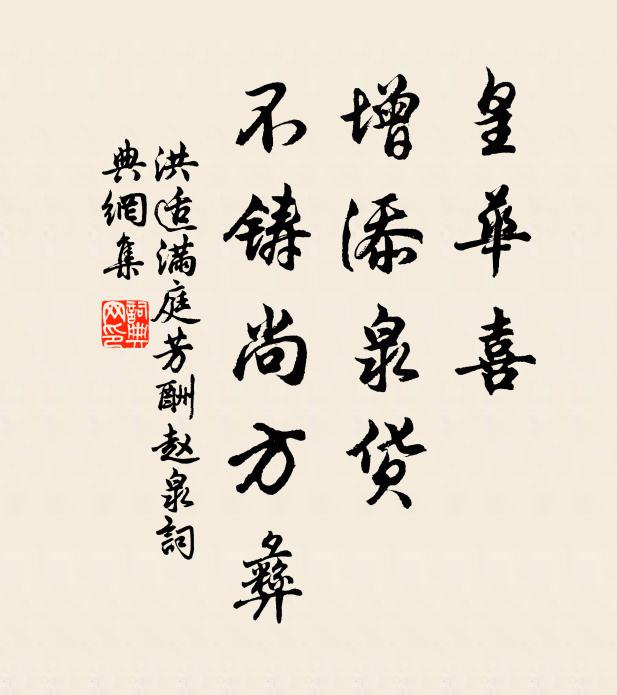 皇華喜
增添泉货
不铸尚方彝
洪适满庭芳酬赵泉詞
典網集
詞典
网印